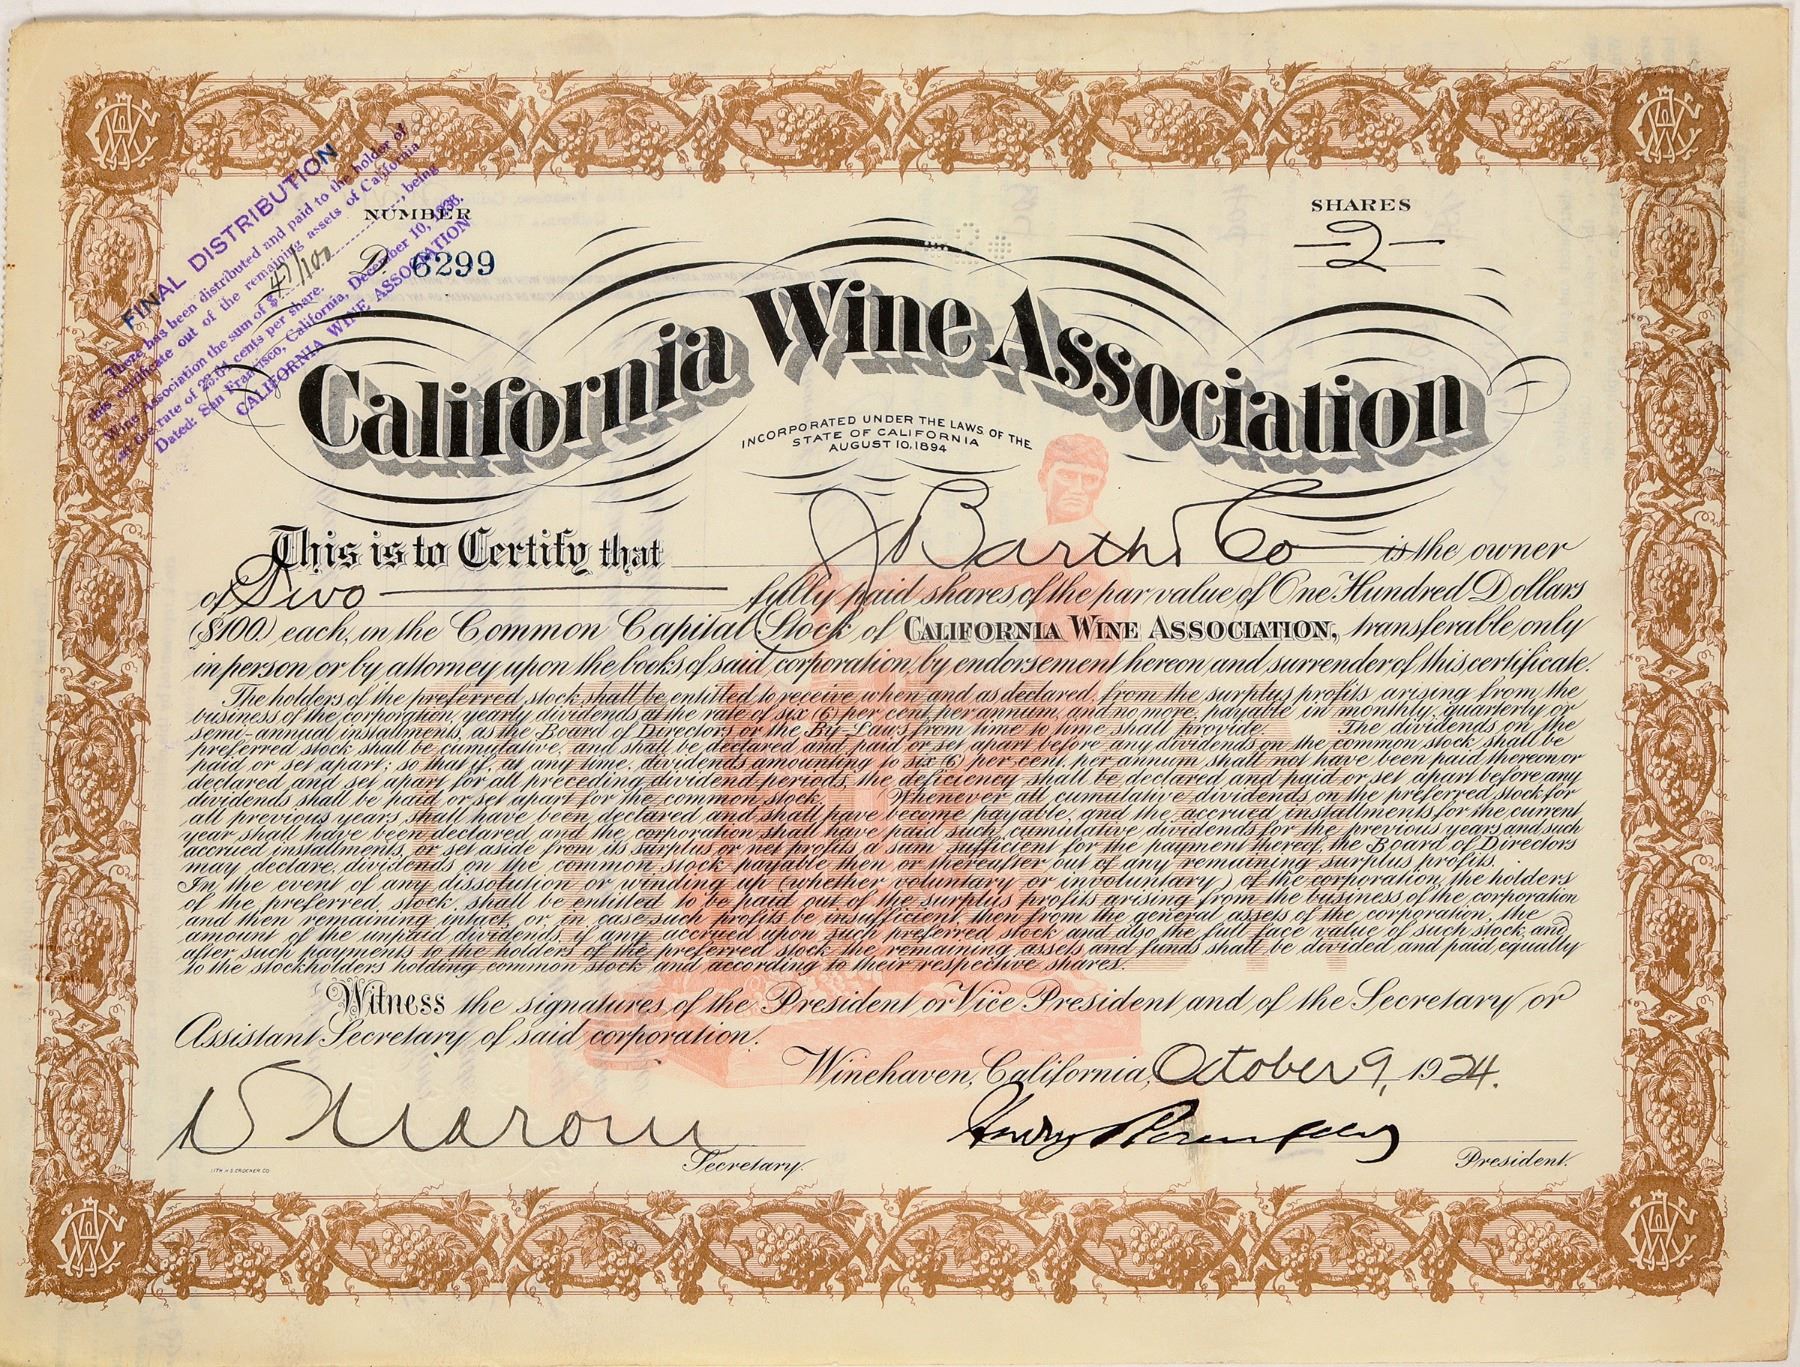 FINAL DISTRIBUTION
There has been distributed and paid to the holder of
this certificate out of the remaining assets of California
Wine Association the sum of $ 47/100, being
at the rate of 23.04 cents per share.
Dated: San Francisco, California, December 10, 1936.
CALIFORNIA WINE ASSOCIATION
NUMBER
D. 6299
SHARES
2
California Wine Association
INCORPORATED UNDER THE LAWS OF THE
STATE OF CALIFORNIA
AUGUST 10, 1894
This is to Certify that J Barth & Co is the owner
of Two fully paid shares of the par value of One Hundred Dollars
($100.) each, in the Common Capital Stock of CALIFORNIA WINE ASSOCIATION, transferable only
in person or by attorney upon the books of said corporation, by endorsement hereon and surrender of this certificate.
The holders of the preferred stock shall be entitled to receive when and as declared, from the surplus profits arising from the
business of the corporation, yearly dividends at the rate of six (6) per cent, per annum, and no more, payable in monthly, quarterly or
semi-annual installments, as the Board of Directors or the By-Laws from time to time shall provide. The dividends on the
preferred stock shall be cumulative, and shall be declared and paid or set apart before any dividends on the common stock shall be
paid or set apart; so that if, at any time, dividends amounting to six (6) per cent. per annum shall not have been paid thereon or
declared and set apart for all preceding dividend periods, the deficiency shall be declared and paid or set apart before any
dividends shall be paid or set apart for the common stock. Whenever all cumulative dividends on the preferred stock for
all previous years shall have been declared and shall have become payable, and the accrued installments for the current
year shall have been declared, and the corporation shall have paid such cumulative dividends for the previous years and such
accrued installments, or set aside from its surplus or net profits a sum sufficient for the payment thereof, the Board of Directors
may declare dividends on the common stock payable then or thereafter out of any remaining surplus profits.
In the event of any dissolution or winding up (whether voluntary or involuntary) of the corporation, the holders
of the preferred stock shall be entitled to be paid out of the surplus profits arising from the business of the corporation
and then remaining intact, or in case such profits be insufficient, then from the general assets of the corporation, the
amount of the unpaid dividends, if any, accrued upon such preferred stock and also the full face value of such stock, and,
after such payments to the holders of the preferred stock the remaining assets and funds shall be divided and paid equally
to the stockholders holding common stock and according to their respective shares.
Witness the signatures of the President or Vice President and of the Secretary or
Assistant Secretary of said corporation.
Winehaven, California, October 9, 1924.
Secretary.
President.
LITH H S CROCKER CO